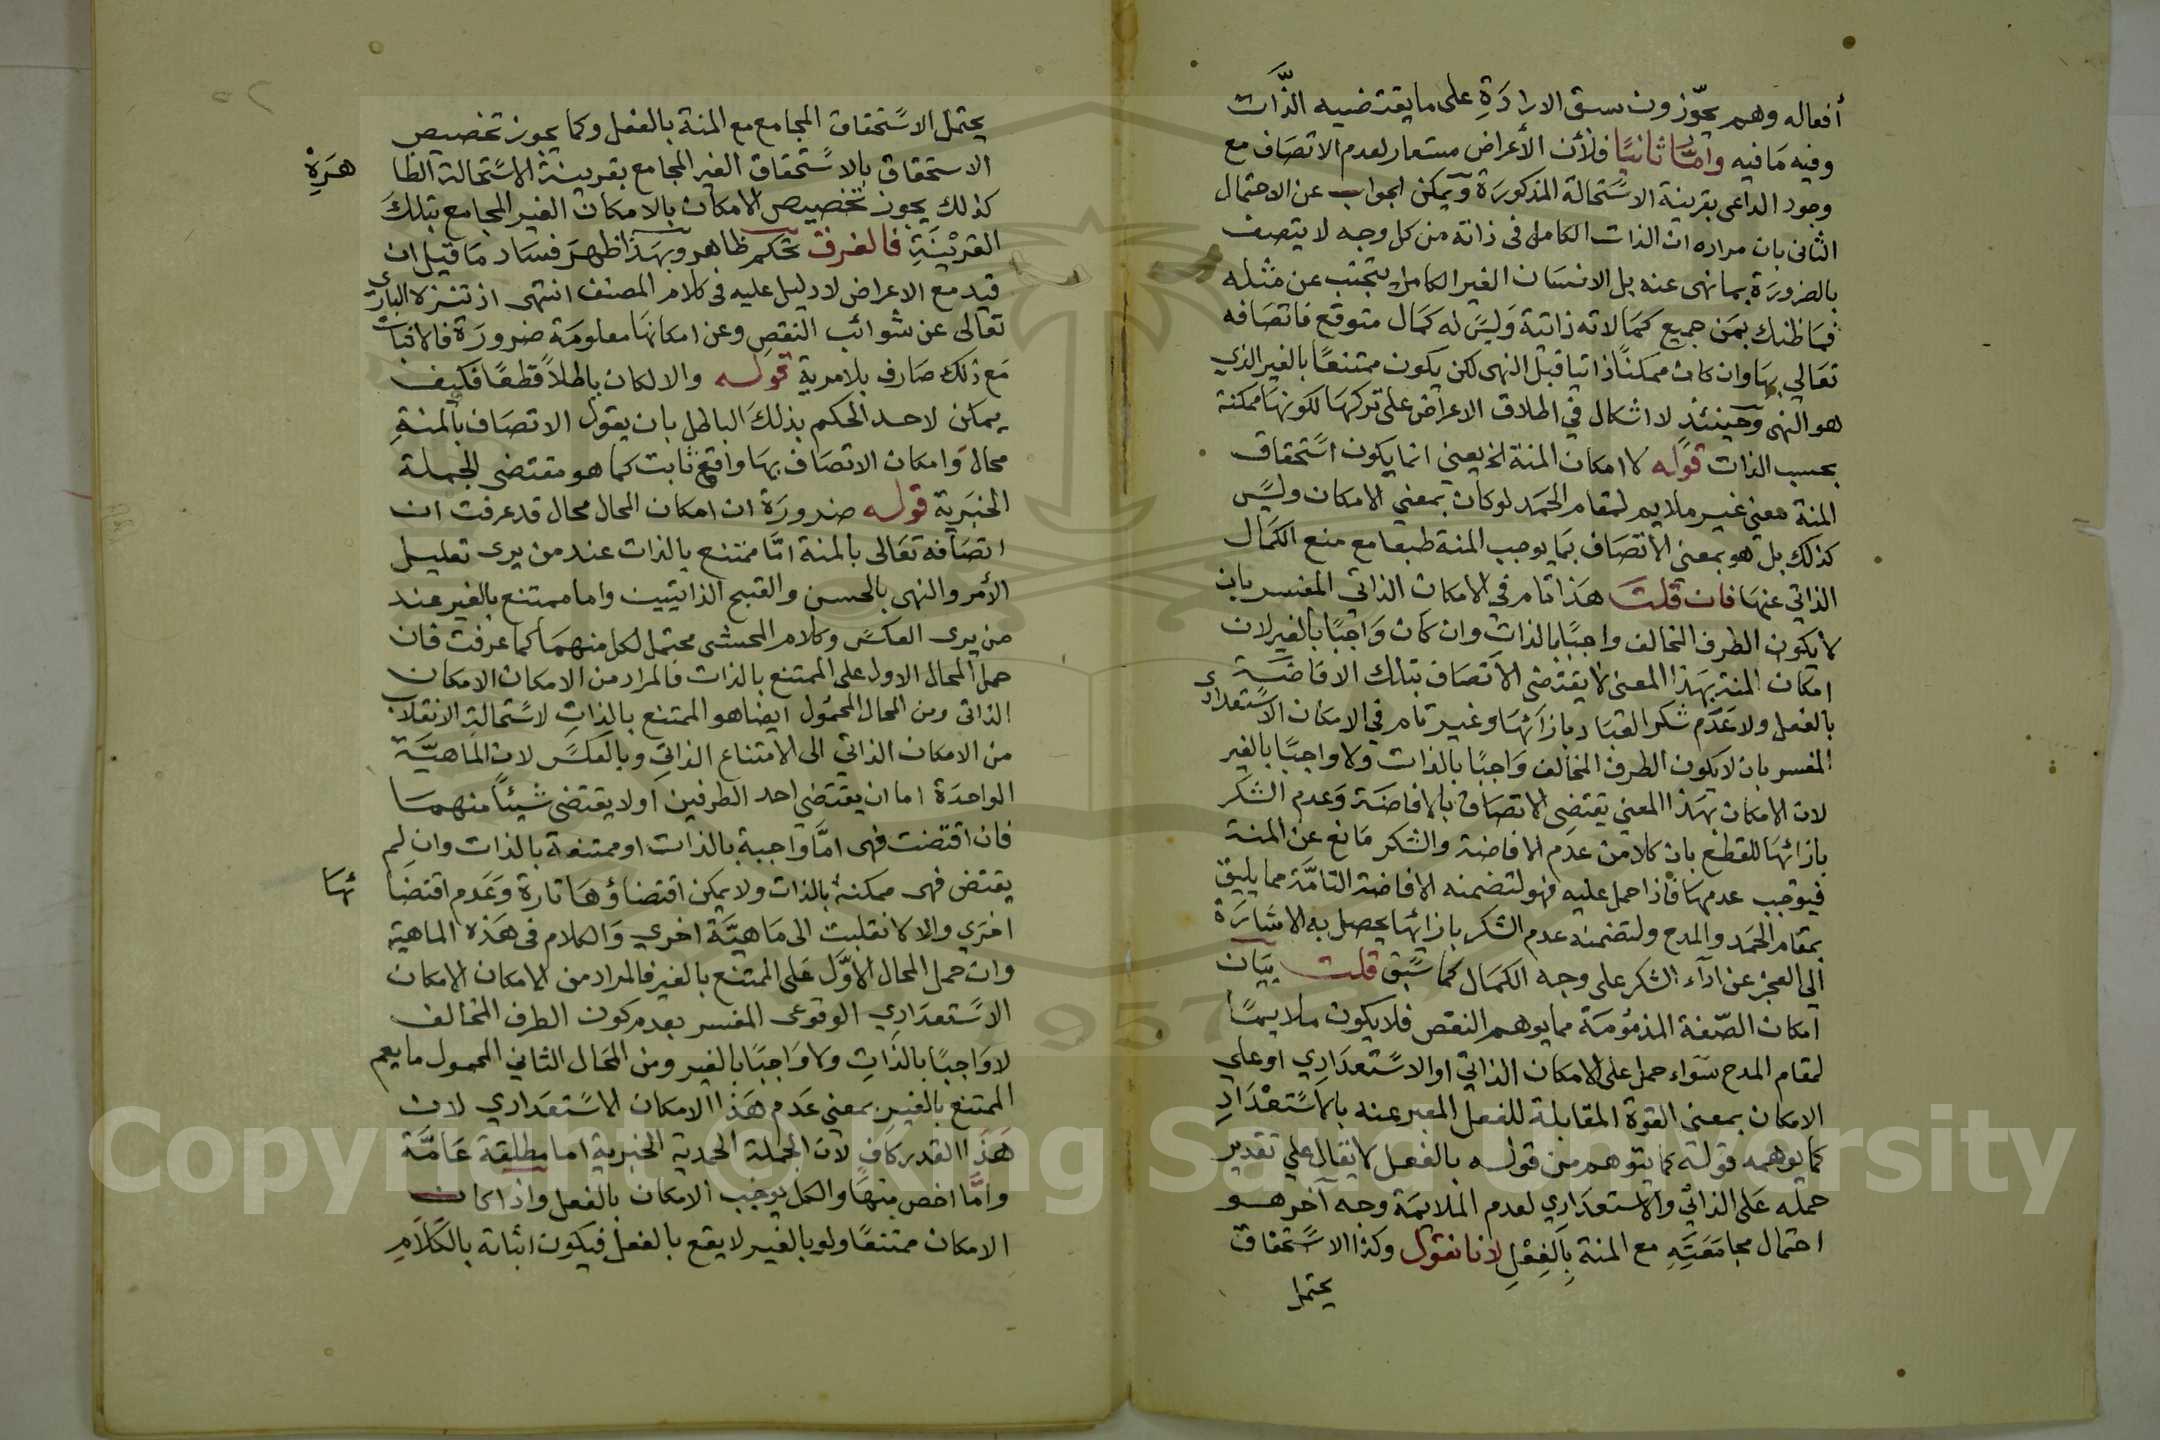 أفعاله وهم يجوّزون سبق الارادَةِ على ما يقتضيه الذّات
وفيه مَا فيه وامَّا ثانيًا فلأن الأعراض مستعار لعدم الاتصَاف مع
وجود الداعى بقرينة الاسْتحالة المذكورَة ويمكن الجواب عن الاحتمال
الثانى بان مراده ان الذات الكامل فى ذاته من كل وجه لا يتصف
بالضرورَة بما نهى عنه بل الانسَان الغير الكامل يتجنب عن مثله
فمَا ظنك بمَن جميع كمَالاته ذاتية وَليسَ له كمَال متوقع فاتصَافه
تعَالى بهَا وان كان ممكنًا ذاتيا قبل النهى لكن يكون ممتنعًا بالغير الذي
هو النهى وحينئذٍ لا اشكال في اطلاق الاعراض على تركهَا لكونهَا ممكنة
بحسب الذات قوله لا امكان المنة الخ يعني انما يكون اسْتحقاق
المنة معنى غير ملايم لمقام الحمَد لو كان بمعني الامكان وليسَ
كذلك بل هو بمعنى الاتصَاف بمَا يوجب المنة طبعا مع منع الكمَال
الذاتي عنهَا فان قلت هَذا تام في الامكان الذاتي المفسر بان
لا يكون الطرف المخالف واجبًا بالذات وان كان وَاجبًا بالغير لان
امكان المنة بهَذا المعنى لا يقتضى الاتصَاف بتلك الافاضَة
بالفعل ولا عَدَم شكر العبَاد بازائهَا وغير تام في الامكان الاسْتعدادي
المفسر بان لا يكون الطرف المخالف وَاجبًا بالذات ولا واجبًا بالغير
لان الامكان بهَذا المعني يقتضِى الاتصَاف بالافاضَة وَعدم الشكر
بازائهَا للقطع بان كلا من عدم الافاضة والشكر مَانع عن المنة
فيوجب عدمهَا فاذا حمل عليه فهو لتضمنه الافاضة التامَّة مما يليق
بمقام الحَمَد والمدح ولتضمنه عدم الشكر بازائهَا يحصل به الاشارَة
الي العجز عن ادآء الشكر على وجه الكمَال كما سَبق قلت بيَان
امكان الصّفة المذمُومَة مما يوهم النقص فلا يكون ملايمًا
لمقام المدح سَواء حمل على الامكان الذاتي او الاسْتعدَادِي او علي
الامكان بمعنى القوة المقابلة للفعل المعبر عنه بالاسْتعْدَادِ
كما يوهمه قوله كما يتوهم من قوله بالفعل لا يقال علي تقدير
حمله عَلى الذاتي والاستعدَادي لعدم الملايمَة وجه آخر هو
احتمال مجامَعَتِهِ مع المنة بِالفِعْلِ لانا نقول وكذا الاسْتحقاق
يحتمل
يحتمل الاسْتحقاق المجامع مع المنة بالفعل وكما يجوز تخصيص
الاستحقاق بالاسْتحقاق الغير المجامع بقرينة الاسْتحالة الظا
هَرِةِ
كذلك يجوز تخصيص الامكان بالامكان الغير المجامع بتلك
القرينَةِ فالفرق تحكم ظاهر وبهَذَا ظهرَ فسَاد مَا قيل ان
قيد مع الاعراض لا دليل عليه فى كلام المصنف انتهى اذ تنزه البارى
تعَالى عن شوائب النقص وعن امكانهَا معلومَة ضرورَة فالاثبات
مَع ذلك صَارف بلا مرية قوله والا لكان باطلًا قطعًا فكيف
يمكن لاحد الحكم بذلك الباطل بان يقول الاتصَاف بالمنةِ
محال وَامكان الاتصَاف بهَا واقع ثابت كما هو مقتضى الجملة
الخبَرية قوله ضرورَة ان امكان المحال محال قد عرفت ان
اتصَافه تعَالى بالمنة امَّا ممتنع بالذات عند من يرى تعليل
الأمر والنهى بالحسن والقبح الذاتيين واما ممتنع بالغير عند
من يرى العكسَ وكلام المحشى محتمل لكل منهمَا كما عرفت فان
حمل المحال الاول على الممتنع بالذات فالمراد من الامكان الامكان
الذاتى ومن المحال المحمُول ايضا هو الممتنع بالذاتِ لاسْتحالة الانقلاب
من الامكان الذاتي الى الامتناع الذاتي وبالعكسَ لان الماهيَّة
الواحدَة اما ان يقتضي احد الطرفين أو لا يقتضى شيئًا منهمَا
فان اقتضت فهى امَّا واجبة بالذات او ممتنعة بالذات وان لم
يقتض فهى ممكنة بالذات ولا يمكن اقتضاؤهَا تارة وَعَدم اقتضَا
ئهَا
اخرَي والا لانقلبت الى مَاهيَّة اخري وَالكلام فى هَذه الماهية
وان حمل المحال الاوَّل عَلى الممتنع بالغير فالمراد من الامكان الامكان
الاسْتعدَادِي الوقوعى المفسر بعدم كون الطرف المخالف
لا وَاجبًا بالذَاتِ ولا وَاجبًا بالغير ومن المَحَال الثاني المحمول ما يعم
الممتنع بالغير بمعني عَدم هَذا الامكان الاسْتعدَادي لان
هَذَا القدر كافٍ لان الجملة الحمدية الخبرية اما مطلقة عَامَّة
وامَّا اخص منهَا والكل يوجب الامكان بالفعل واذا كان
الامكان ممتنعًا ولو بالغير لا يقع بالفعل فيكون اثباته بالكَلَامِ
Copyright © King Saud University
1957